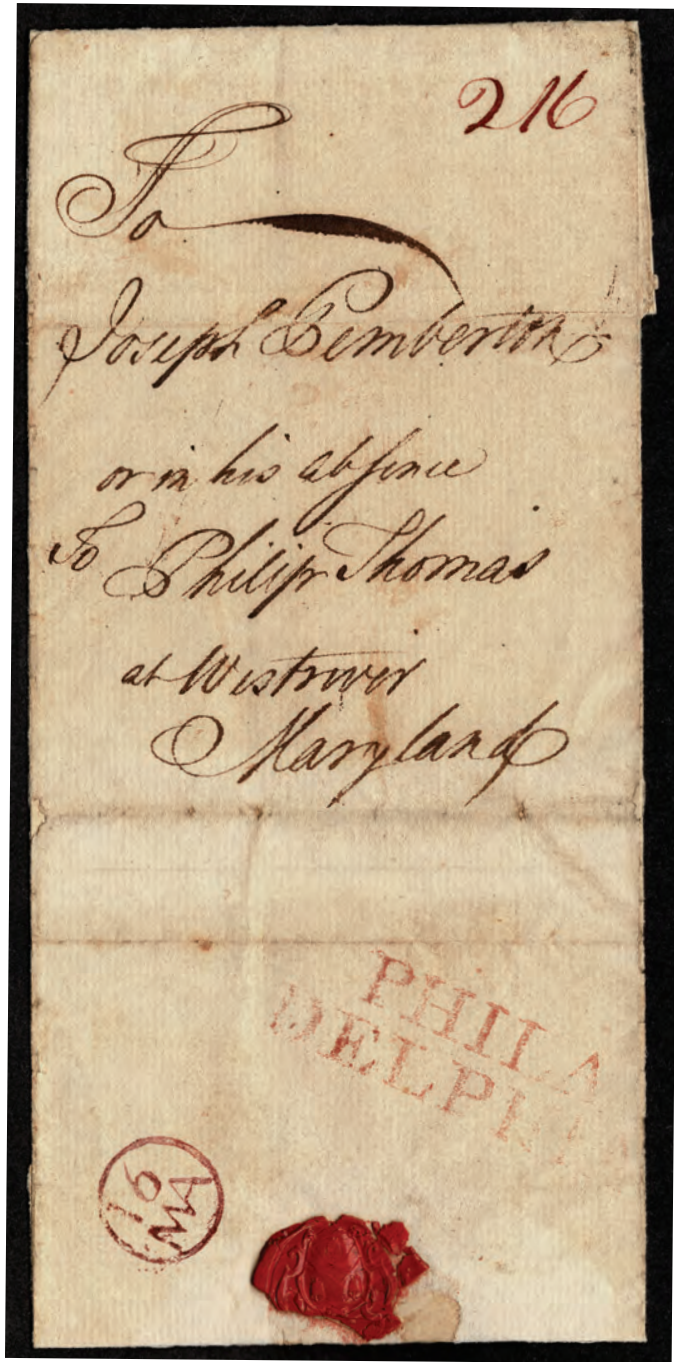 216
To
Joseph Pemberton
or in his absence
To Philip Thomas
at Westriver
Maryland
PHILA
DELPHI
16
MA